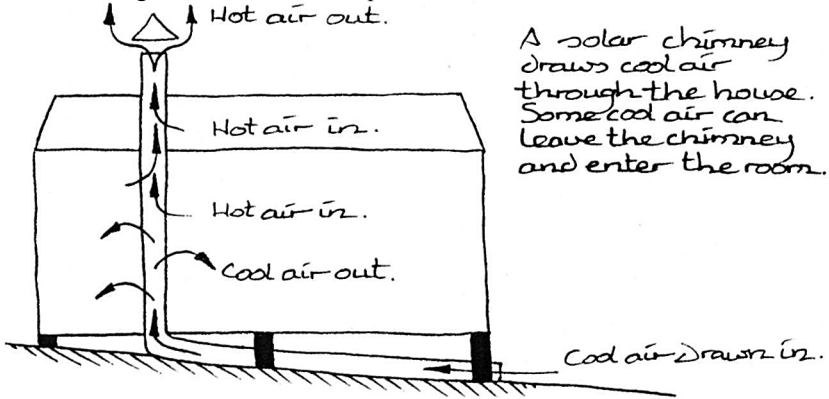 Hot air out.
A solar chimney
draws cool air
through the house.
Some cool air can
leave the chimney
and enter the room.
Hot air in.
Hot air in.
Cool air out.
Cool air Drawn in.